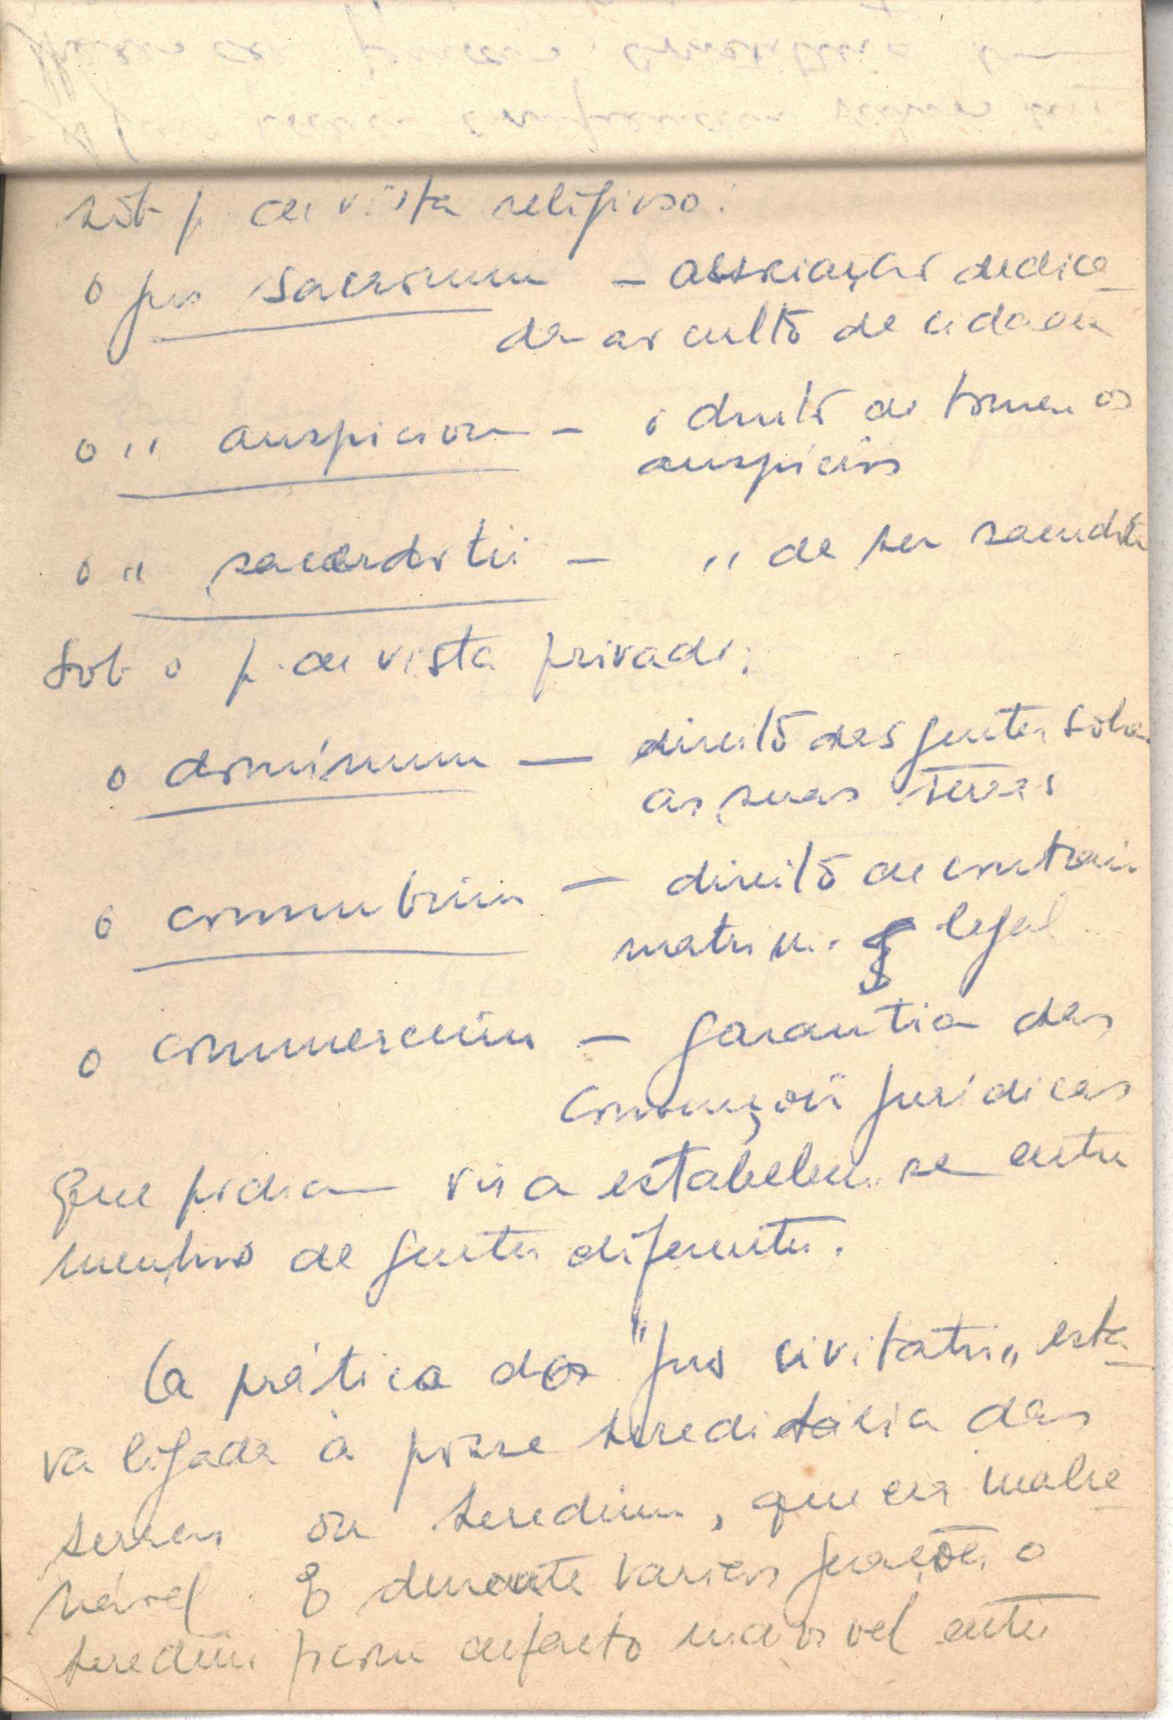 sob p. de vista religioso:
o jus sacrorum – associação dedica-
da ao culto da cidade
o " auspiciorum – o direito de tomar os
auspícios
o " sacerdotii – " de ser sacerdote
Sob o p. de vista privado:
o dominium — direito das gentes sobre
as suas terras
o connubium – direito de contrair
matrim. legal
o commercium – garantia das
convenções jurídicas
que podiam vir a estabelecer-se entre
membros de gentes diferentes.
Na prática do "jus civitatis" esta-
va ligada à posse hereditária das
terras ou heredium, que era inalie-
nável. E durante varias gerações o
heredium ficou de facto indivisível entre